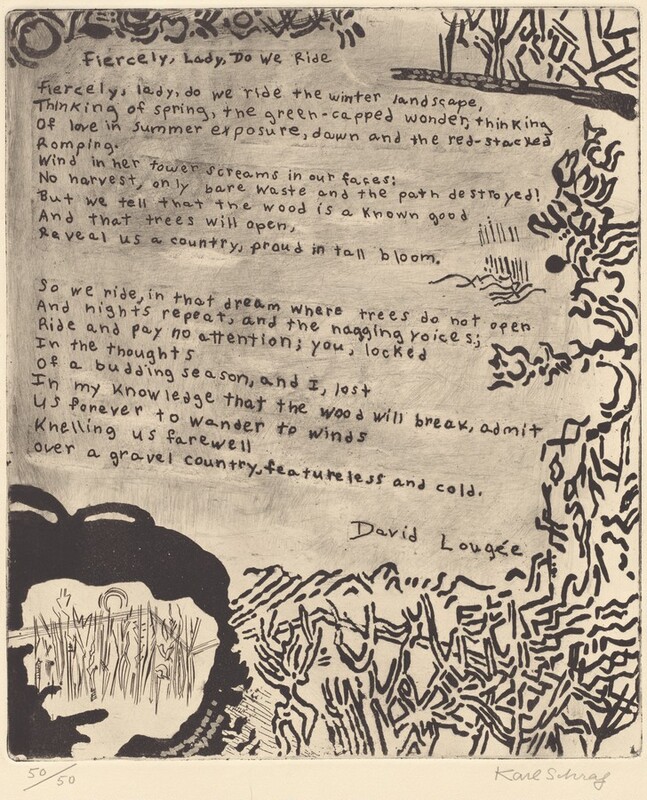 Fiercely, Lady, Do We Ride
Fiercely, lady, do we ride the winter landscape,
Thinking of spring, the green-capped wonder, thinking
Of love in summer exposure, dawn and the red-stacked
Romping.
Wind in her tower screams in our faces:
No harvest, only bare waste and the path destroyed!
But we tell that the wood is a known good
And that trees will open,
Reveal us a country, proud in tall bloom.
So we ride, in that dream where trees do not open
And nights repeat, and the nagging voices;
Ride and pay no attention; you, locked
In the thoughts
Of a budding season, and I, lost
In my knowledge that the wood will break, admit
Us forever to wander to winds
Knelling us farewell
over a gravel country, featureless and cold.
David Lougée
50/50
Karl Schrag